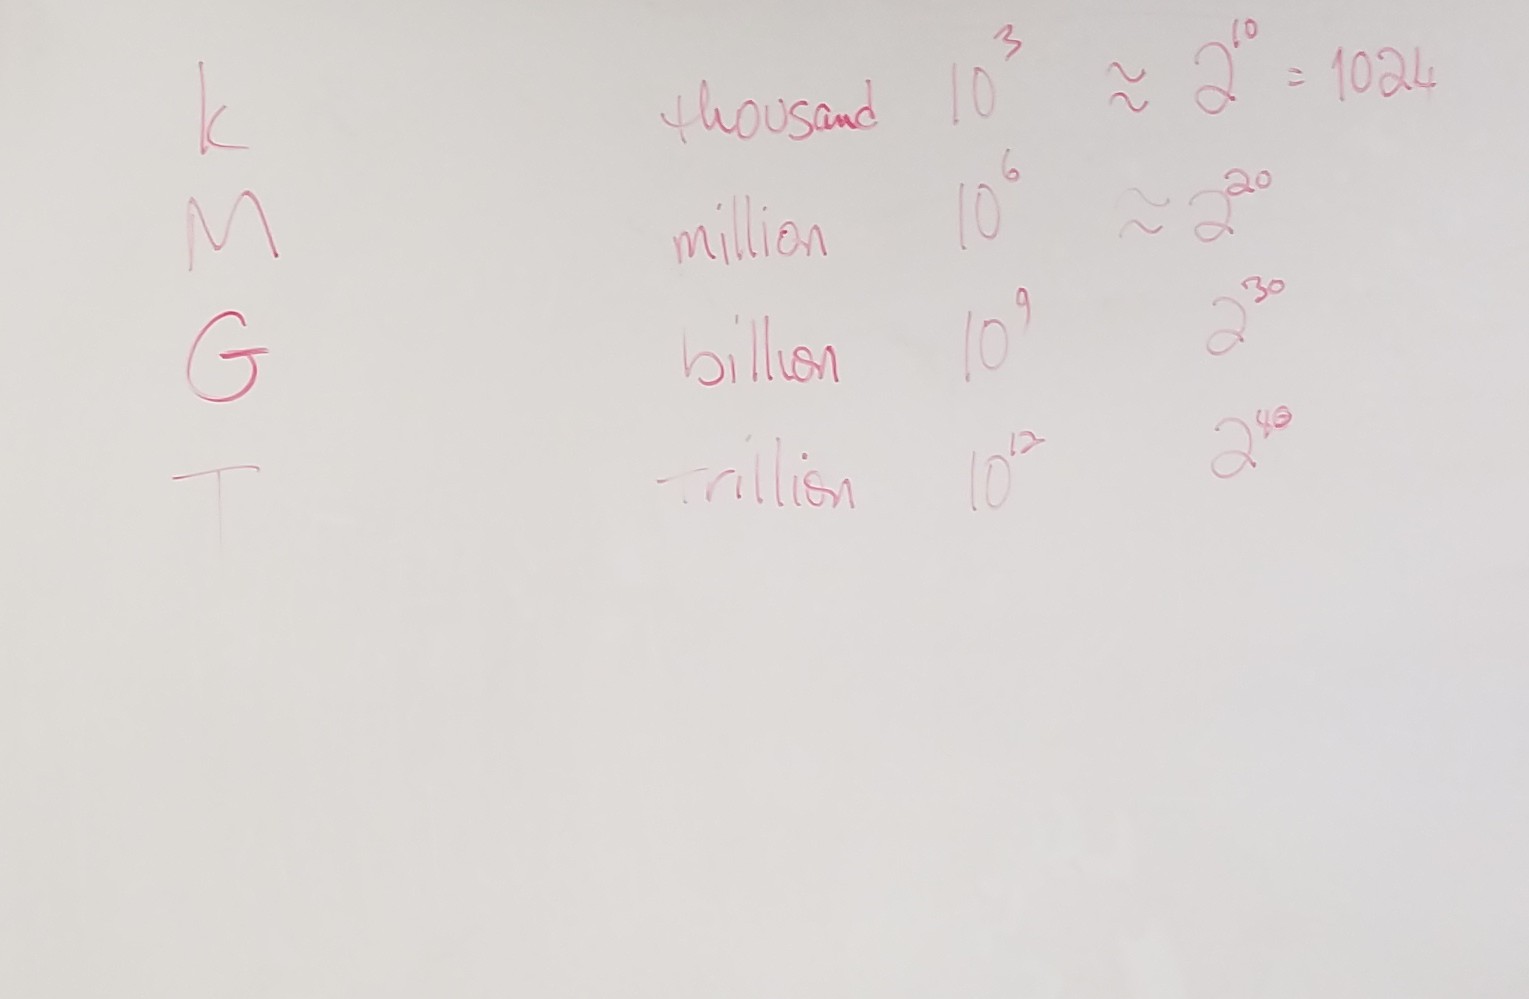 k thousand 10³ ≈ 2¹⁰ = 1024
M million 10⁶ ≈ 2²⁰
G billion 10⁹ 2³⁰
T Trillion 10¹² 2⁴⁰